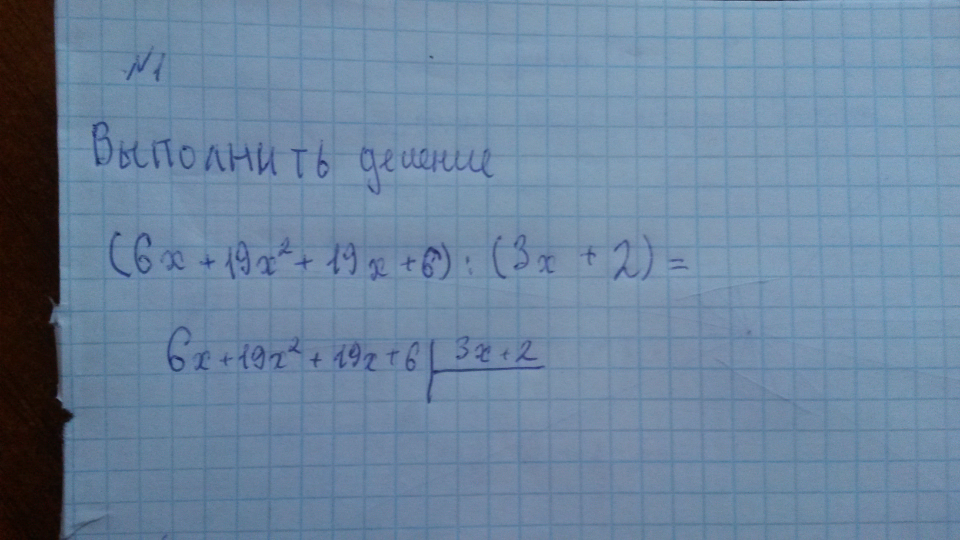 №1
Выполнить деление
(6x + 19x² + 19x + 6) : (3x + 2) =
6x + 19x² + 19x + 6 | 3x + 2